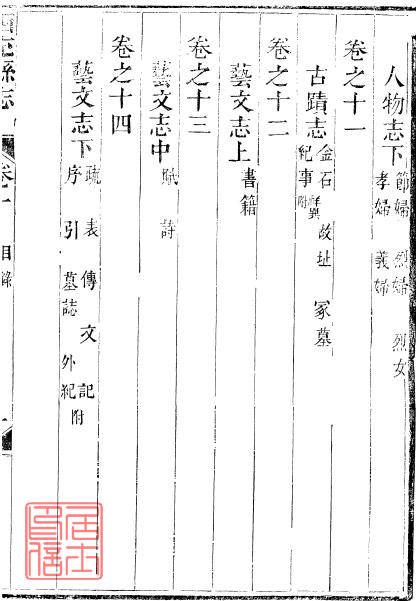 人物志下 節婦 烈婦 烈女 孝婦 義婦
卷之十一
古蹟志 金石 故址 冢墓 紀事 祥異附
卷之十二
藝文志上 書籍
卷之十三
藝文志中 賦 詩
卷之十四
藝文志下 疏 表 傳 文 記 序 引 墓誌 外紀附
縣志 卷 目錄